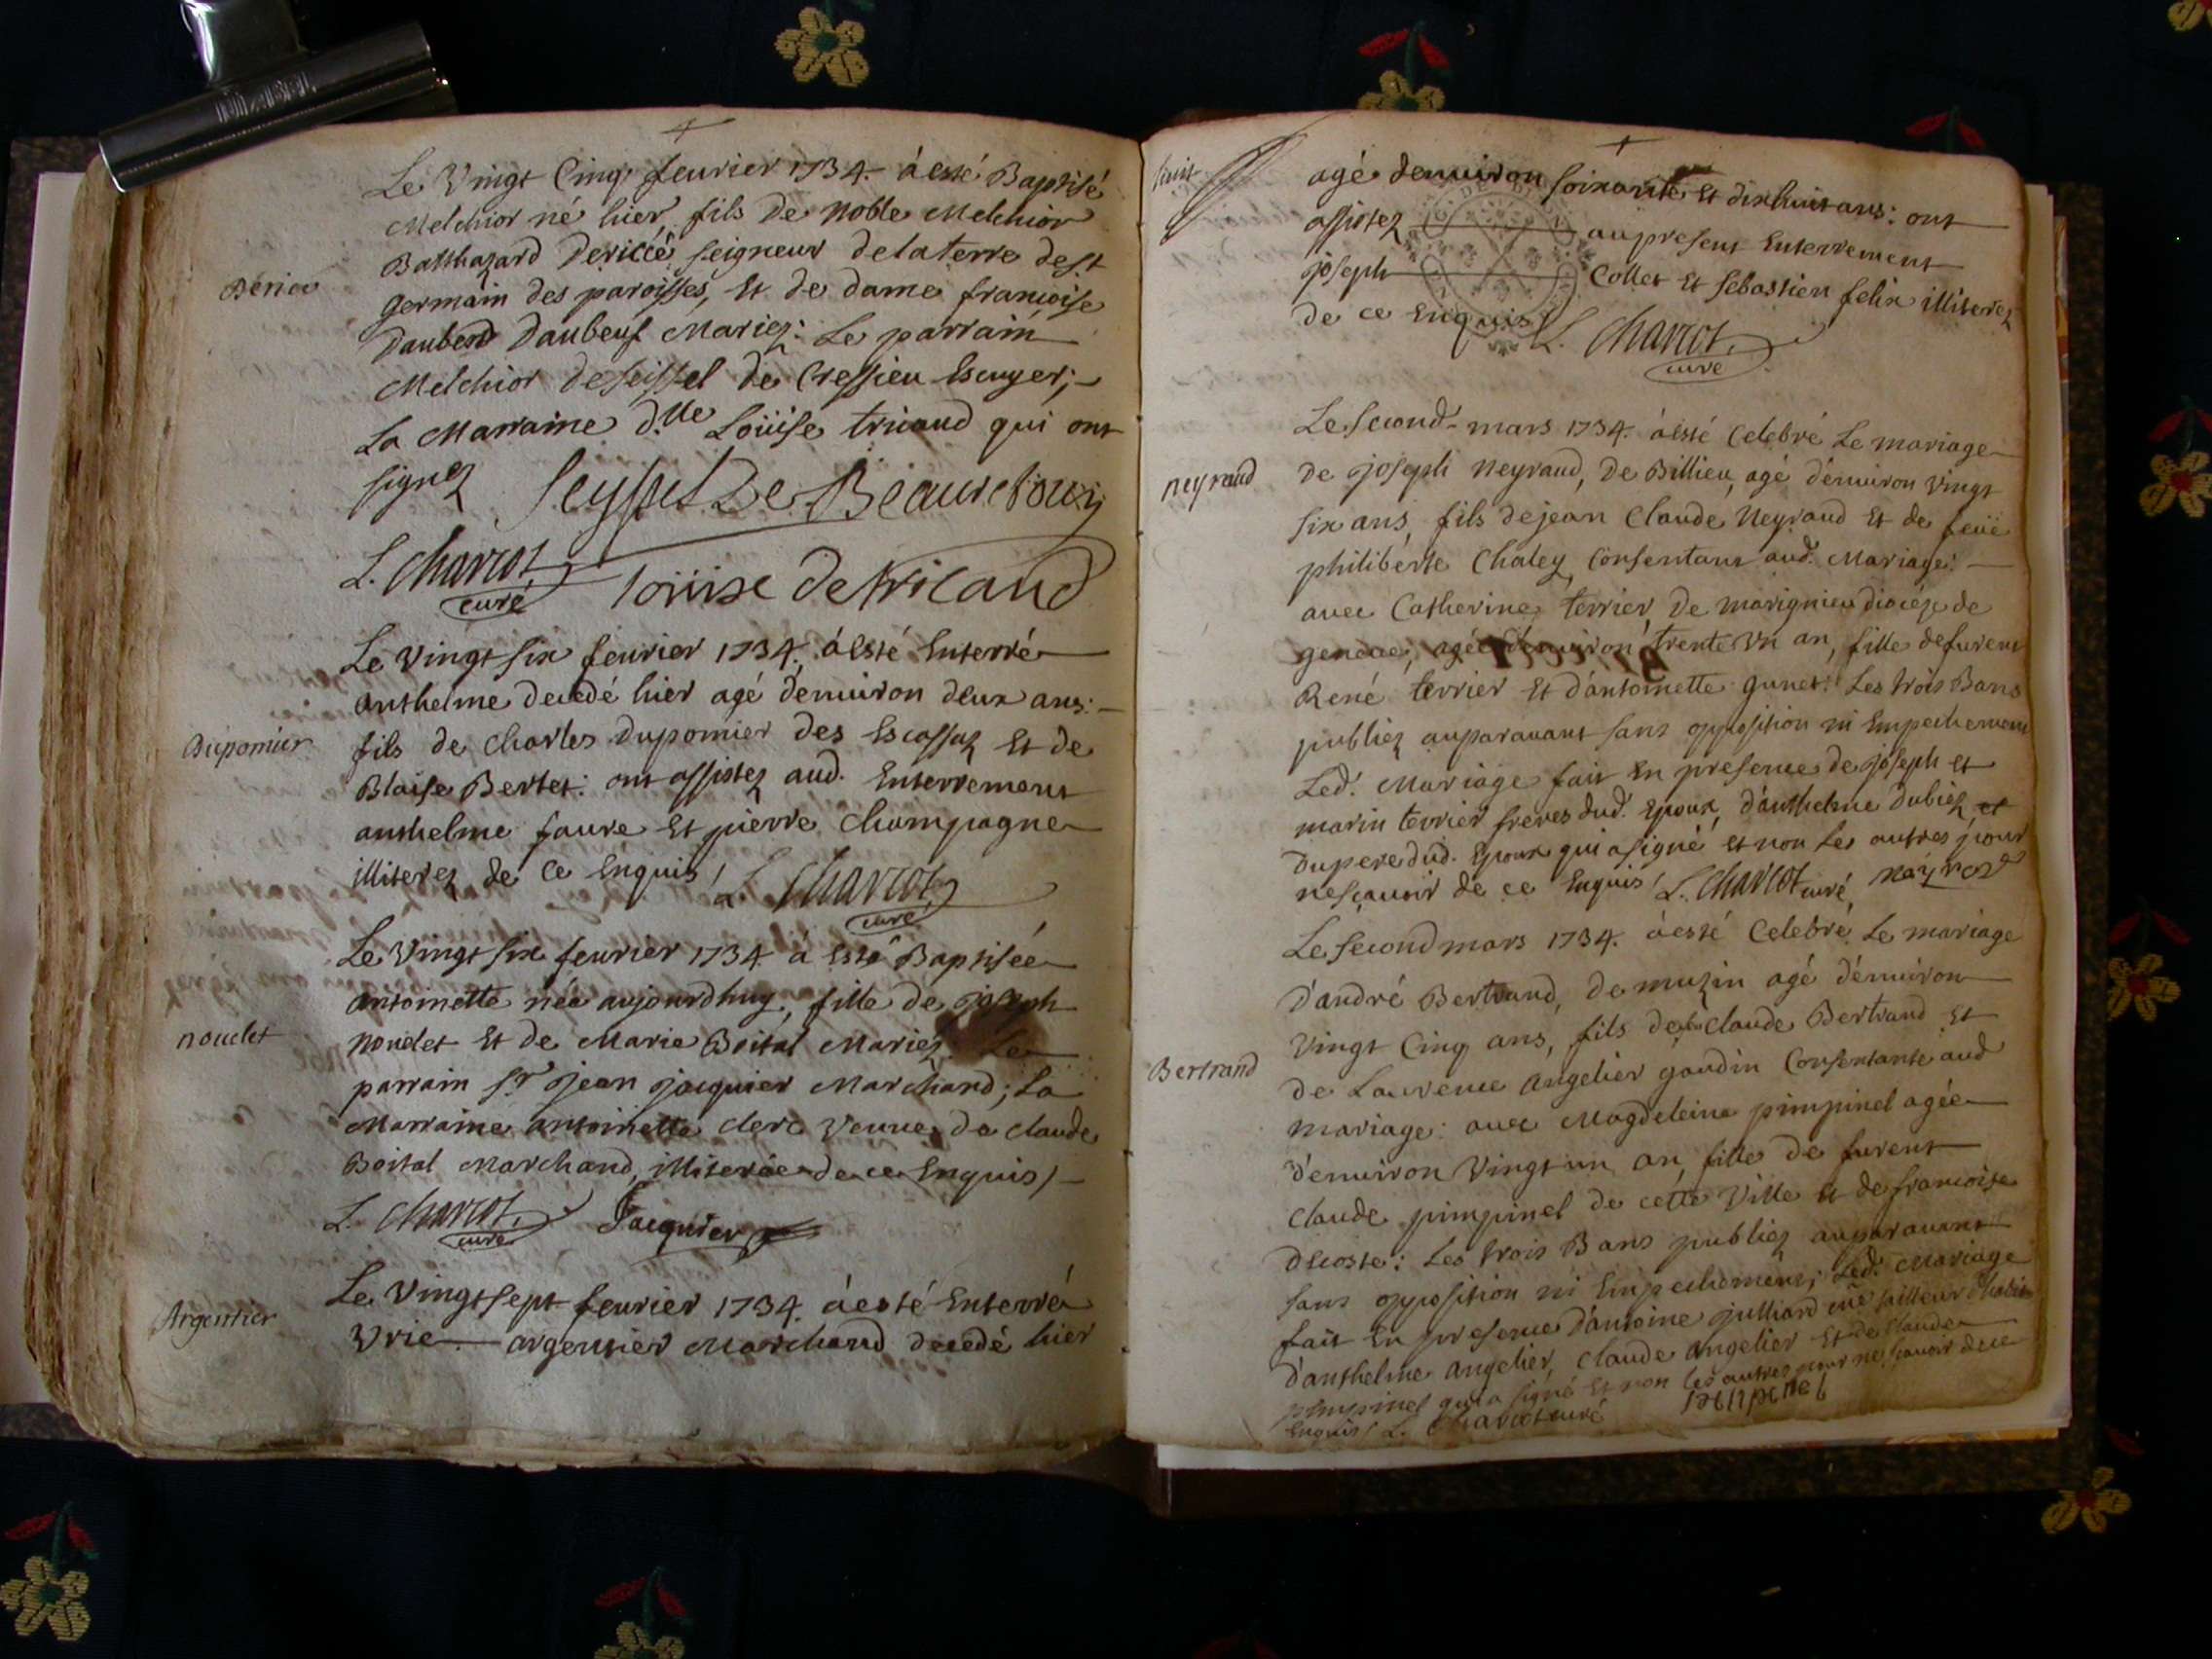 Le Vingt Cinq feurier 1734. à esté Baptisé
Melchior né hier, fils de Noble Melchior
Balthazard Dericcé seigneur de la terre de st
Germain des paroisses, et de dame francoise
Daubeuf Mariez: Le parrain
Melchior de seissel de Cressieu Escuyer;
La Marraine d.lle Loüise tricaud qui ont
signez
L. Charcot
curé
Loüise de tricaud
Le Vingt six feurier 1734. à esté Enterré
Anthelme decedé hier agé denuiron deux ans:
Dupomier
fils de Charles Dupomier des Escassaz et de
Blaise Bertet: ont assistez aud. Enterrement
anthelme faure et pierre Champagne
illiterez de ce Enquis/ L. Charcot
curé
Le Vingt six feurier 1734 à esté Baptisée
antoinette née aujourdhuy, fille de joseph
nouelet
Nouelet et de Marie Boital Mariez Le
parrain sr jean jacquier Marchand; La
Marraine antoinette clerc Veuue de claude
Boital Marchand, illiterée de ce Enquis/
L. Charcot Jacquier
curé
Le Vingt sept feurier 1734. à esté Enterré
Argentier
Vrie argentier Marchand decedé hier
suit
agé denuiron soixante et dixhuit ans: ont
assistez au present Enterrement
joseph Collet et sebastien felix illiterez
de ce Enquis/ L. Charcot
curé
Le second mars 1734. à esté Celebré Le mariage
neyraud
de joseph Neyraud, de Billieu, agé d'enuiron Vingt
six ans, fils de jean Claude Neyraud et de feüe
philiberte Chaley, Consentans aud. Mariage:
auec Catherine terrier, de marignieu diocéze de
geneue, agée d'enuiron trente Vn an, fille de furent
René terrier et d'antoinette gunet: Les trois Bans
publiez auparauant sans opposition ni Empechement
Led. Mariage fait En presence de joseph et
marin terrier freres dud. Epoux, d'anthelme dubiez, et
du pere dud. Epoux qui a signé et non les autres pour
ne sçauoir de ce Enquis/ L. Charcot curé, Nayrod
Le second mars 1734. à esté Celebré Le mariage
D'andré Bertrand, de muzin agé d'enuiron
Vingt Cinq ans, fils de fu claude Bertrand et
Bertrand
de Laurence Angelier gaudin Consentante aud
mariage: auec Magdeleine pimpinel agée
d'enuiron Vingt un an, fille de furent
Claude pimpinel de cette Ville et de francoise
Decoste: Les trois Bans publiez auparauant
sans opposition ni Empechement; Led. Mariage
fait En presence D'antoine julliard tailleur
d'anthelme Angelier, Claude Angelier et de Claude
pimpinel qui a signé et non les autres pour ne sçauoir de ce
Enquis/ L. Charcot curé